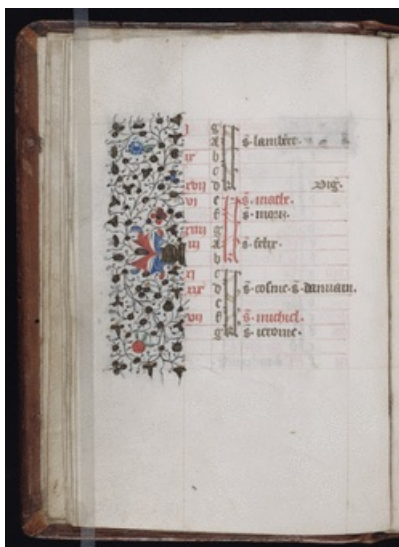 j g
a s. lambert.
ix b
c
xvij d Vig.
vj e s. mathe.
f s. morii.
xiiij g
iij a s. felix.
b
xj c
xix d s. cosme s. damiain.
e
f s. michiel.
g s. ierome.